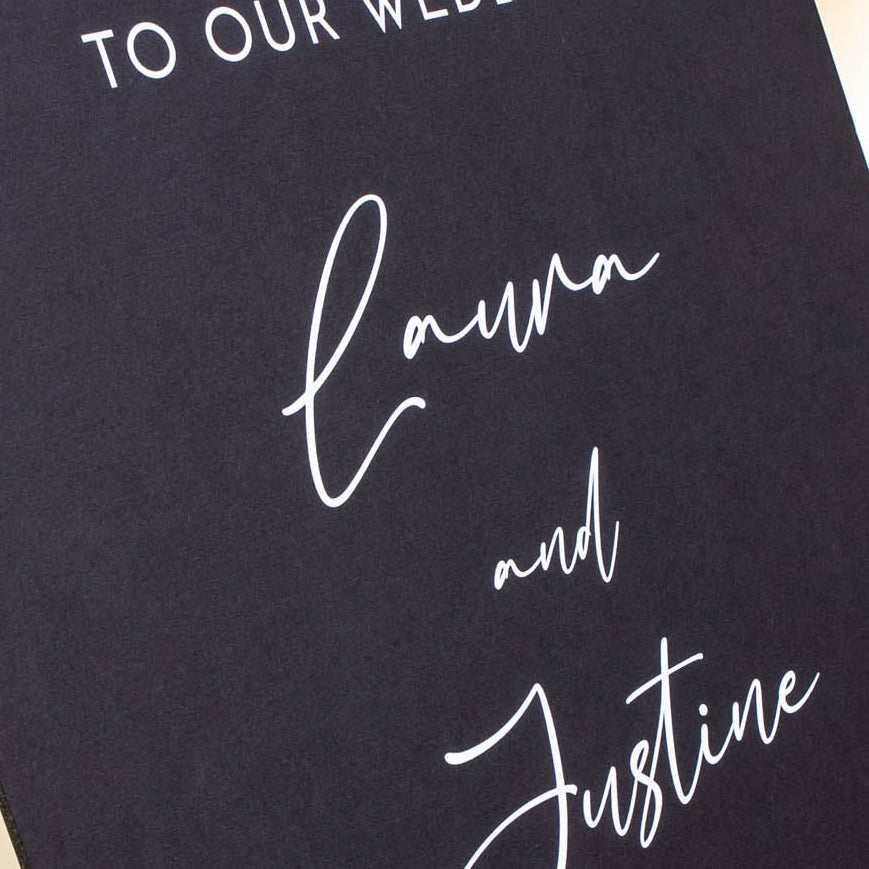 TO OUR
Laura
and
Justine